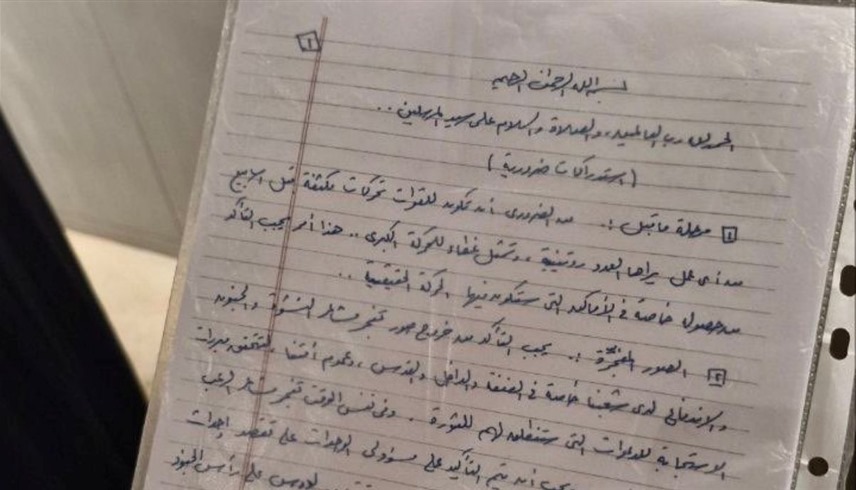 ١
بسم الله الرحمن الرحيم
الحمد لله رب العالمين، والصلاة والسلام على سيد المرسلين..
(استدراكات ضرورية)
١ مرحلة ما قبل :. من الضروري أن تكون للقوات تحركات مكثفة قبل أسابيع
من أي عمل يراها العدو روتينية، وتمثل غطاء للحركة الكبرى.. هذا أمر يجب التأكد
من حصوله خاصة في الأماكن التي ستكون فيها الحركة الحقيقية..
٢ الصور المفجرة :. يجب التأكد من خروج صور تفجر مشاعر النشوة والجنون
والاندفاع لدى شعبنا خاصة في الضفة والداخل والقدس، وعموم أمتنا لتتحقق مبررات
الاستجابة للدعوات التي ستنطلق لهم للثورة.. وفي نفس الوقت تفجر مشاعر الرعب
يجب أن يتم التأكيد على مسؤولي الوحدات على تقصد إحداث
على رأس الجنود